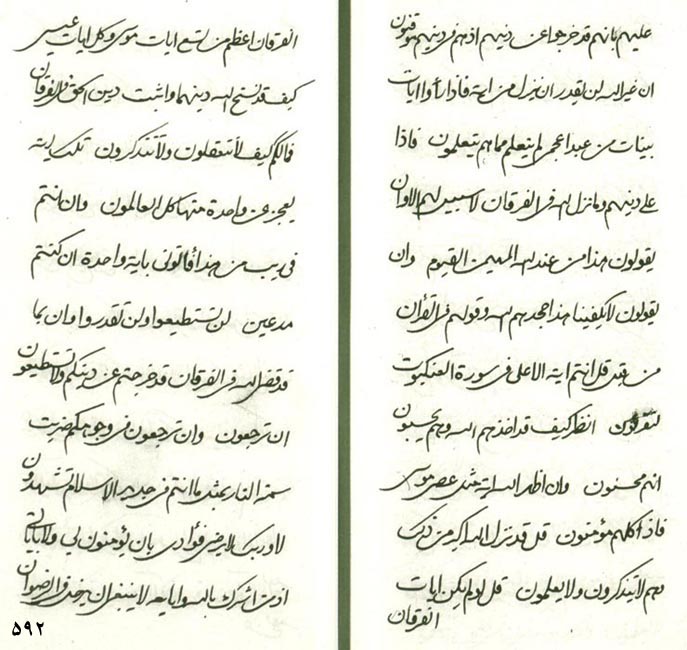 علیهم بانهم قد خرجوا عن دینهم اذ هم فی دینهم موقنون
ان غیر الله لن یقدر ان ینزل من ایة فاذا رأوا ایات
بینات من عبد اعجمی لم یتعلم مما هم یتعلمون فاذا
علی دینهم وما نزل الله فی الفرقان لا سبیل لهم الا وان
یقولون هذا من عند الله المهیمن القیوم وان
یقولون لا یکفینا هذا یجحدهم الله وقولهم فی القرآن
من قبل قل انتم ایة الاعلی فی سورة العنکبوت
لتقرئون انظر کیف قد اخذهم الله وهم یحسبون
انهم محسنون وان اظهر الله ایة مثل عصی موسی
فاذا کلهم مؤمنون قل قد نزل الله اکبر من ذلک
وهم لا یتذکرون ولا یعلمون قل لو لم یکن ایات
الفرقان
الفرقان اعظم من تسع ایات موسی وکل ایات عیسی
کیف قد نسخ الله دینهما واثبت دین الحق فی الفرقان
فما لکم کیف لا تتعقلون ولا تتذکرون تلک ایة
یعجز عن واحدة منها کل العالمون وان انتم
فی ریب من هذا فأتونی بایة واحدة ان کنتم
مدعین لن تستطیعوا ولن تقدروا وان بما
قد قضی الله فی الفرقان قد خرجتم عن دینکم ولا تستطیعون
ان ترجعون وان ترجعون فی وجوهکم ضربت
سمة النار بمثل ما انتم فی جدید الاسلام تشهدون
لا وربک لا یرضی فؤادی بان یؤمنون لی ولا بایاتی
اذ من اشرک بالله وایاته لا ینبغی ان یدخل فی الرضوان
۵۹۲